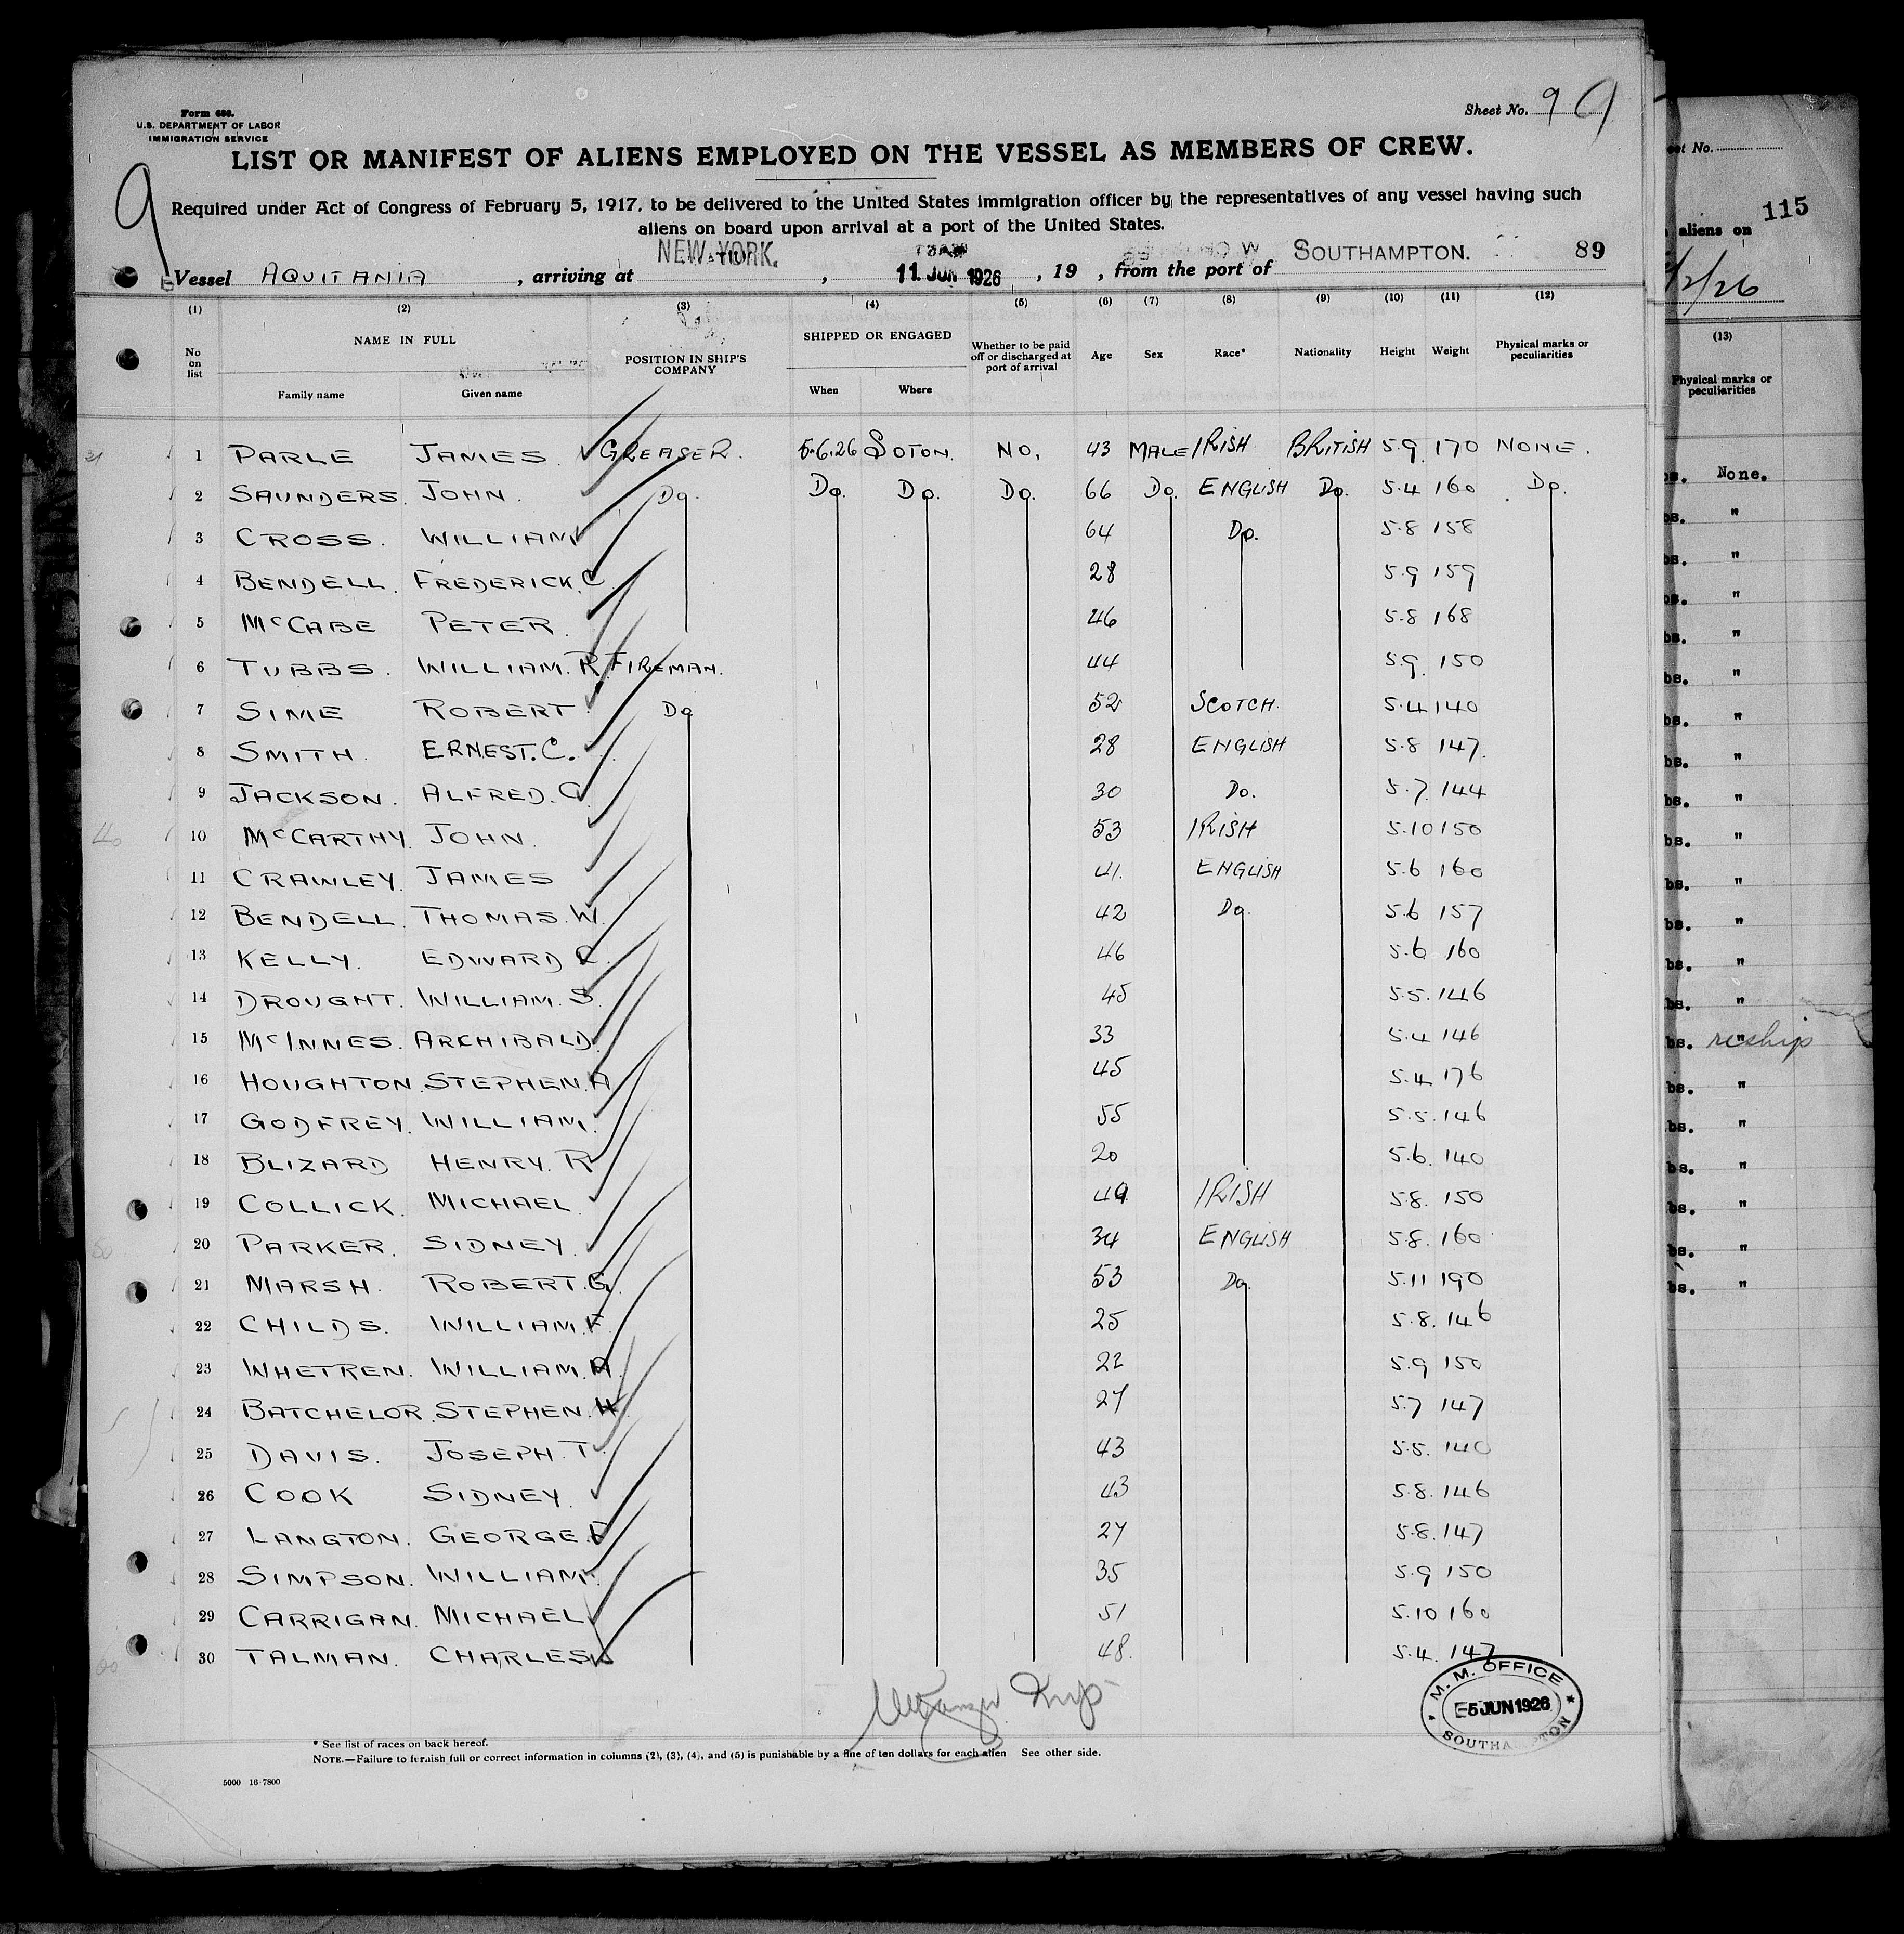 Form 686.
U.S. DEPARTMENT OF LABOR
IMMIGRATION SERVICE
Sheet No. 9 9
LIST OR MANIFEST OF ALIENS EMPLOYED ON THE VESSEL AS MEMBERS OF CREW.
9
Required under Act of Congress of February 5, 1917, to be delivered to the United States immigration officer by the representatives of any vessel having such
aliens on board upon arrival at a port of the United States.
Vessel AQUITANIA, arriving at NEW YORK, 11 JUN 1926, 19 , from the port of SOUTHAMPTON. 89
(1) (2) (3) (4) (5) (6) (7) (8) (9) (10) (11) (12)
No on list NAME IN FULL Family name Given name POSITION IN SHIP'S COMPANY SHIPPED OR ENGAGED When Where Whether to be paid off or discharged at port of arrival Age Sex Race* Nationality Height Weight Physical marks or peculiarities
1 PARLE JAMES GREASER. 5.6.26 SOTON. NO. 43 MALE IRISH BRITISH 5.9 170 NONE.
2 SAUNDERS. JOHN. Do. Do. Do. Do. 66 Do. ENGLISH Do. 5.4 160 Do.
3 CROSS. WILLIAM 64 Do. 5.8 158
4 BENDELL. FREDERICK. C 28 5.9 159
5 McCABE PETER. 46 5.8 168
6 TUBBS. WILLIAM. R FIREMAN. 44 5.9. 150
7 SIME ROBERT Do 52 SCOTCH. 5.4 140
8 SMITH. ERNEST. C. 28 ENGLISH 5.8 147.
9 JACKSON. ALFRED. G 30 Do. 5.7. 144
10 McCARTHY. JOHN. 53 IRISH 5.10 150
11 CRAWLEY. JAMES 41. ENGLISH 5.6 160
12 BENDELL. THOMAS. W. 42 Do. 5.6 157
13 KELLY. EDWARD C. 46 5.6 160
14 DROUGHT. WILLIAM. S. 45 5.5. 146
15 McINNES. ARCHIBALD. 33 5.4 146
16 HOUGHTON. STEPHEN. A 45 5.4 176
17 GODFREY. WILLIAM. 55 5.5. 146
18 BLIZARD HENRY. R 20 5.6. 140
19 COLLICK. MICHAEL. 49 IRISH 5.8. 150
20 PARKER. SIDNEY. 34 ENGLISH 5.8. 160
21 MARSH. ROBERT. G. 53 Do. 5.11 190
22 CHILDS. WILLIAM. F. 25 5.8. 146
23 WHETREN. WILLIAM. A. 22 5.9 150
24 BATCHELOR. STEPHEN. H. 27 5.7 147
25 DAVIS. JOSEPH. T. 43 5.5. 140
26 COOK SIDNEY. 43 5.8. 146
27 LANGTON. GEORGE. F 27 5.8. 147
28 SIMPSON. WILLIAM. 35 5.9 150
29 CARRIGAN. MICHAEL 51 5.10 160
30 TALMAN. CHARLES 48. 5.4. 147
M. M. OFFICE
5 JUN 1926
SOUTHAMPTON
* See list of races on back hereof.
NOTE.—Failure to furnish full or correct information in columns (2), (3), (4), and (5) is punishable by a fine of ten dollars for each alien See other side.
5000 16-7800
No.
115
aliens on
2/26
(13)
Physical marks or
peculiarities
bs. None.
bs. "
bs. "
bs. "
bs. "
bs. "
bs. "
bs. "
bs. "
bs. "
bs. "
bs. "
bs. "
bs. "
bs. " reship
bs. "
bs. "
bs. "
bs. "
bs. "
bs. "